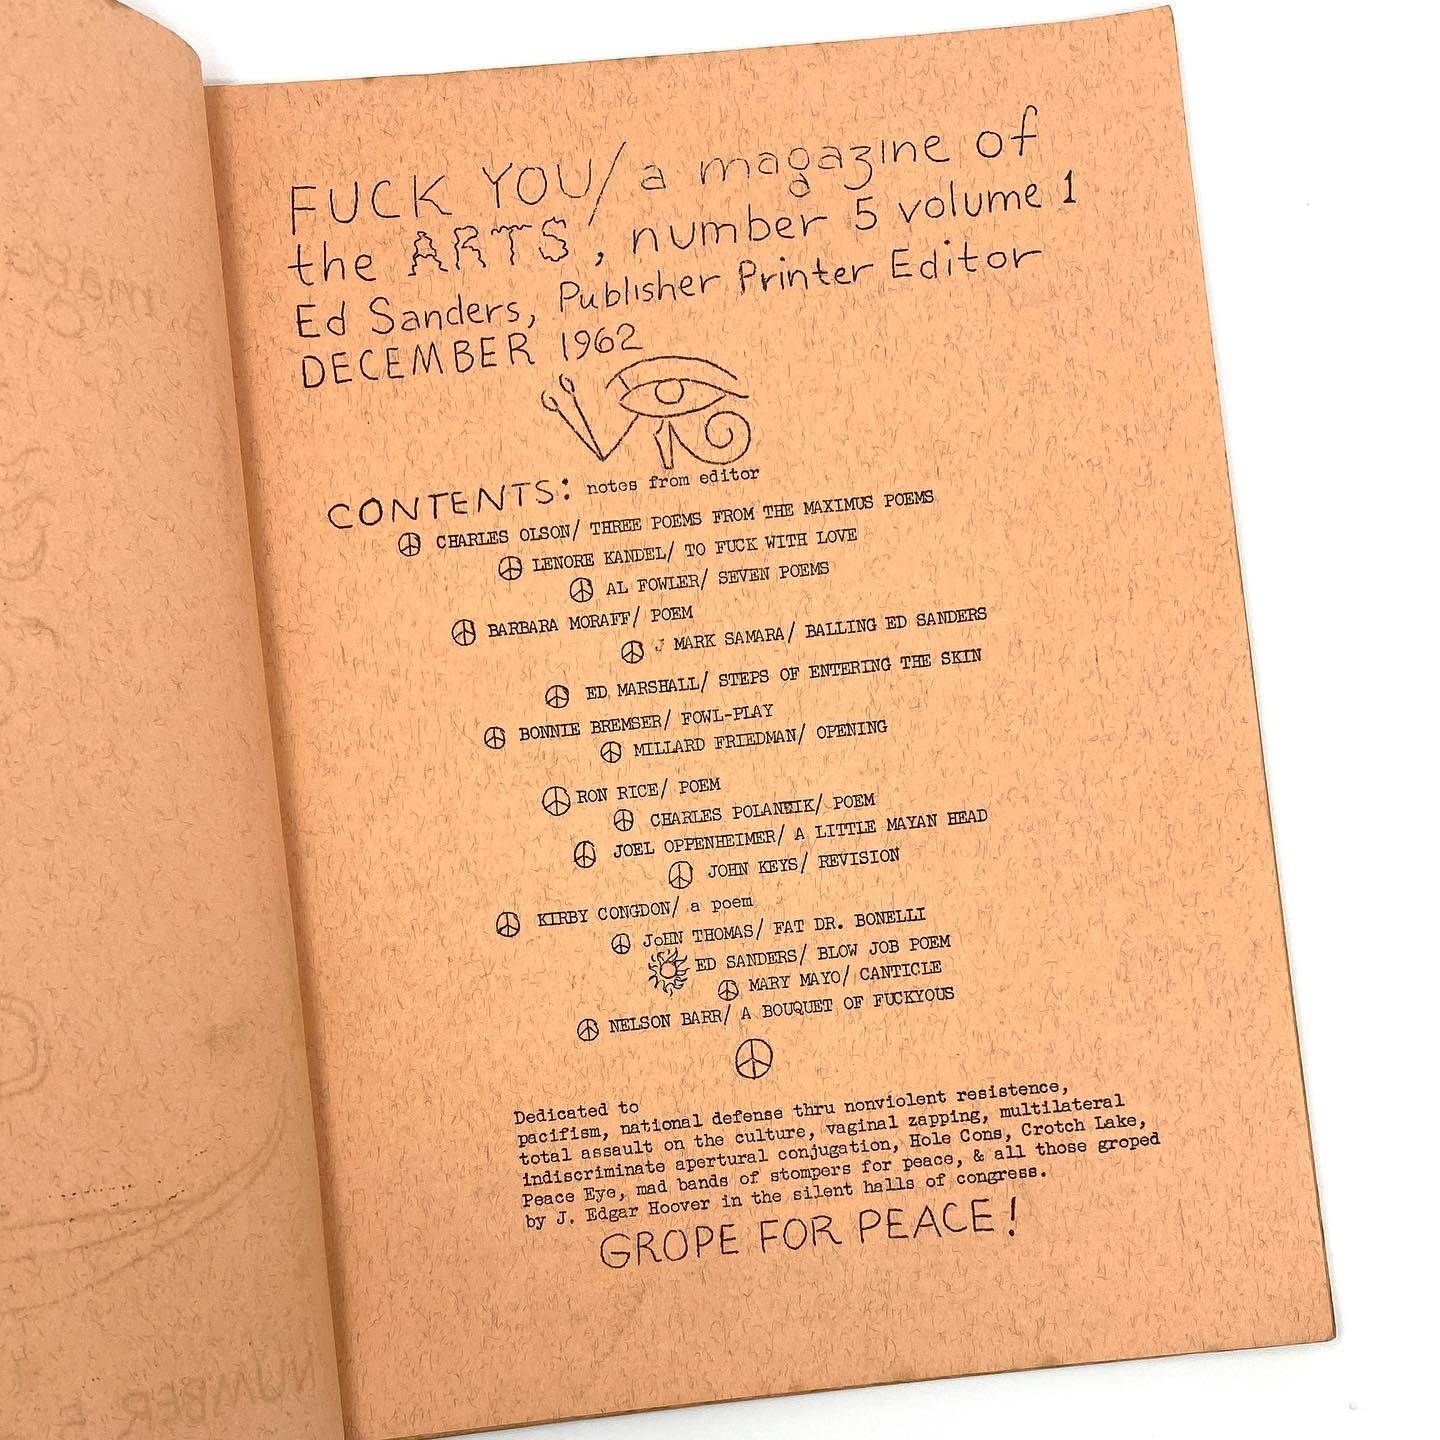 FUCK YOU/ a magazine of
the ARTS, number 5 volume 1
Ed Sanders, Publisher Printer Editor
DECEMBER 1962
CONTENTS: notes from editor
CHARLES OLSON/ THREE POEMS FROM THE MAXIMUS POEMS
LENORE KANDEL/ TO FUCK WITH LOVE
AL FOWLER/ SEVEN POEMS
BARBARA MORAFF/ POEM
J MARK SAMARA/ BALLING ED SANDERS
ED MARSHALL/ STEPS OF ENTERING THE SKIN
BONNIE BREMSER/ FOWL-PLAY
MILLARD FRIEDMAN/ OPENING
RON RICE/ POEM
CHARLES / POEM
JOEL OPPENHEIMER/ A LITTLE MAYAN HEAD
JOHN KEYS/ REVISION
KIRBY CONGDON/ a poem
JoHN THOMAS/ FAT DR. BONELLI
ED SANDERS/ BLOW JOB POEM
MARY MAYO/ CANTICLE
NELSON BARR/ A BOUQUET OF FUCKYOUS
Dedicated to
pacifism, national defense thru nonviolent resistence,
total assault on the culture, vaginal zapping, multilateral
indiscriminate apertural conjugation, Hole Cons, Crotch Lake,
Peace Eye, mad bands of stompers for peace, & all those groped
by J. Edgar Hoover in the silent halls of congress.
GROPE FOR PEACE!
NUMBER